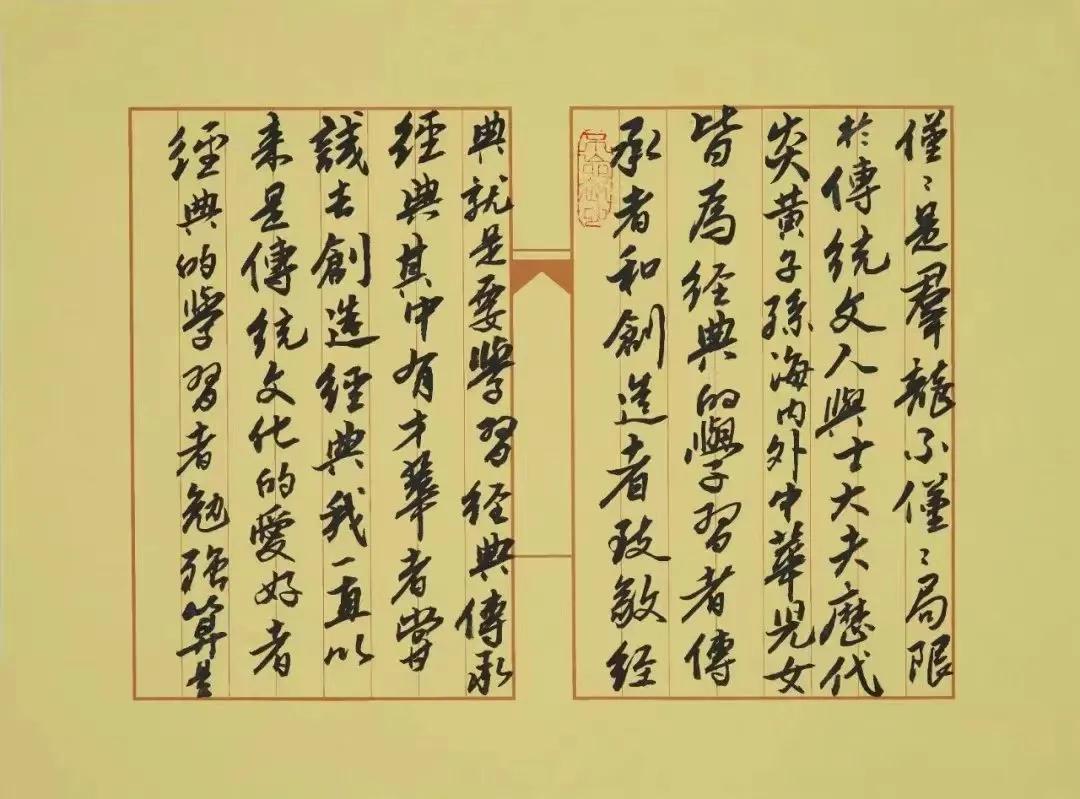 僅〻是羣龍不僅〻局限
於傳統文人與士大夫歷代
炎黃子孫海内外中華児女
皆為經典的學習者傳
承者和創造者致敬經
典就是要學習經典傳承
經典其中有才華者嘗
試去創造經典我一直以
来是傳統文化的愛好者
經典的學習者勉强算是